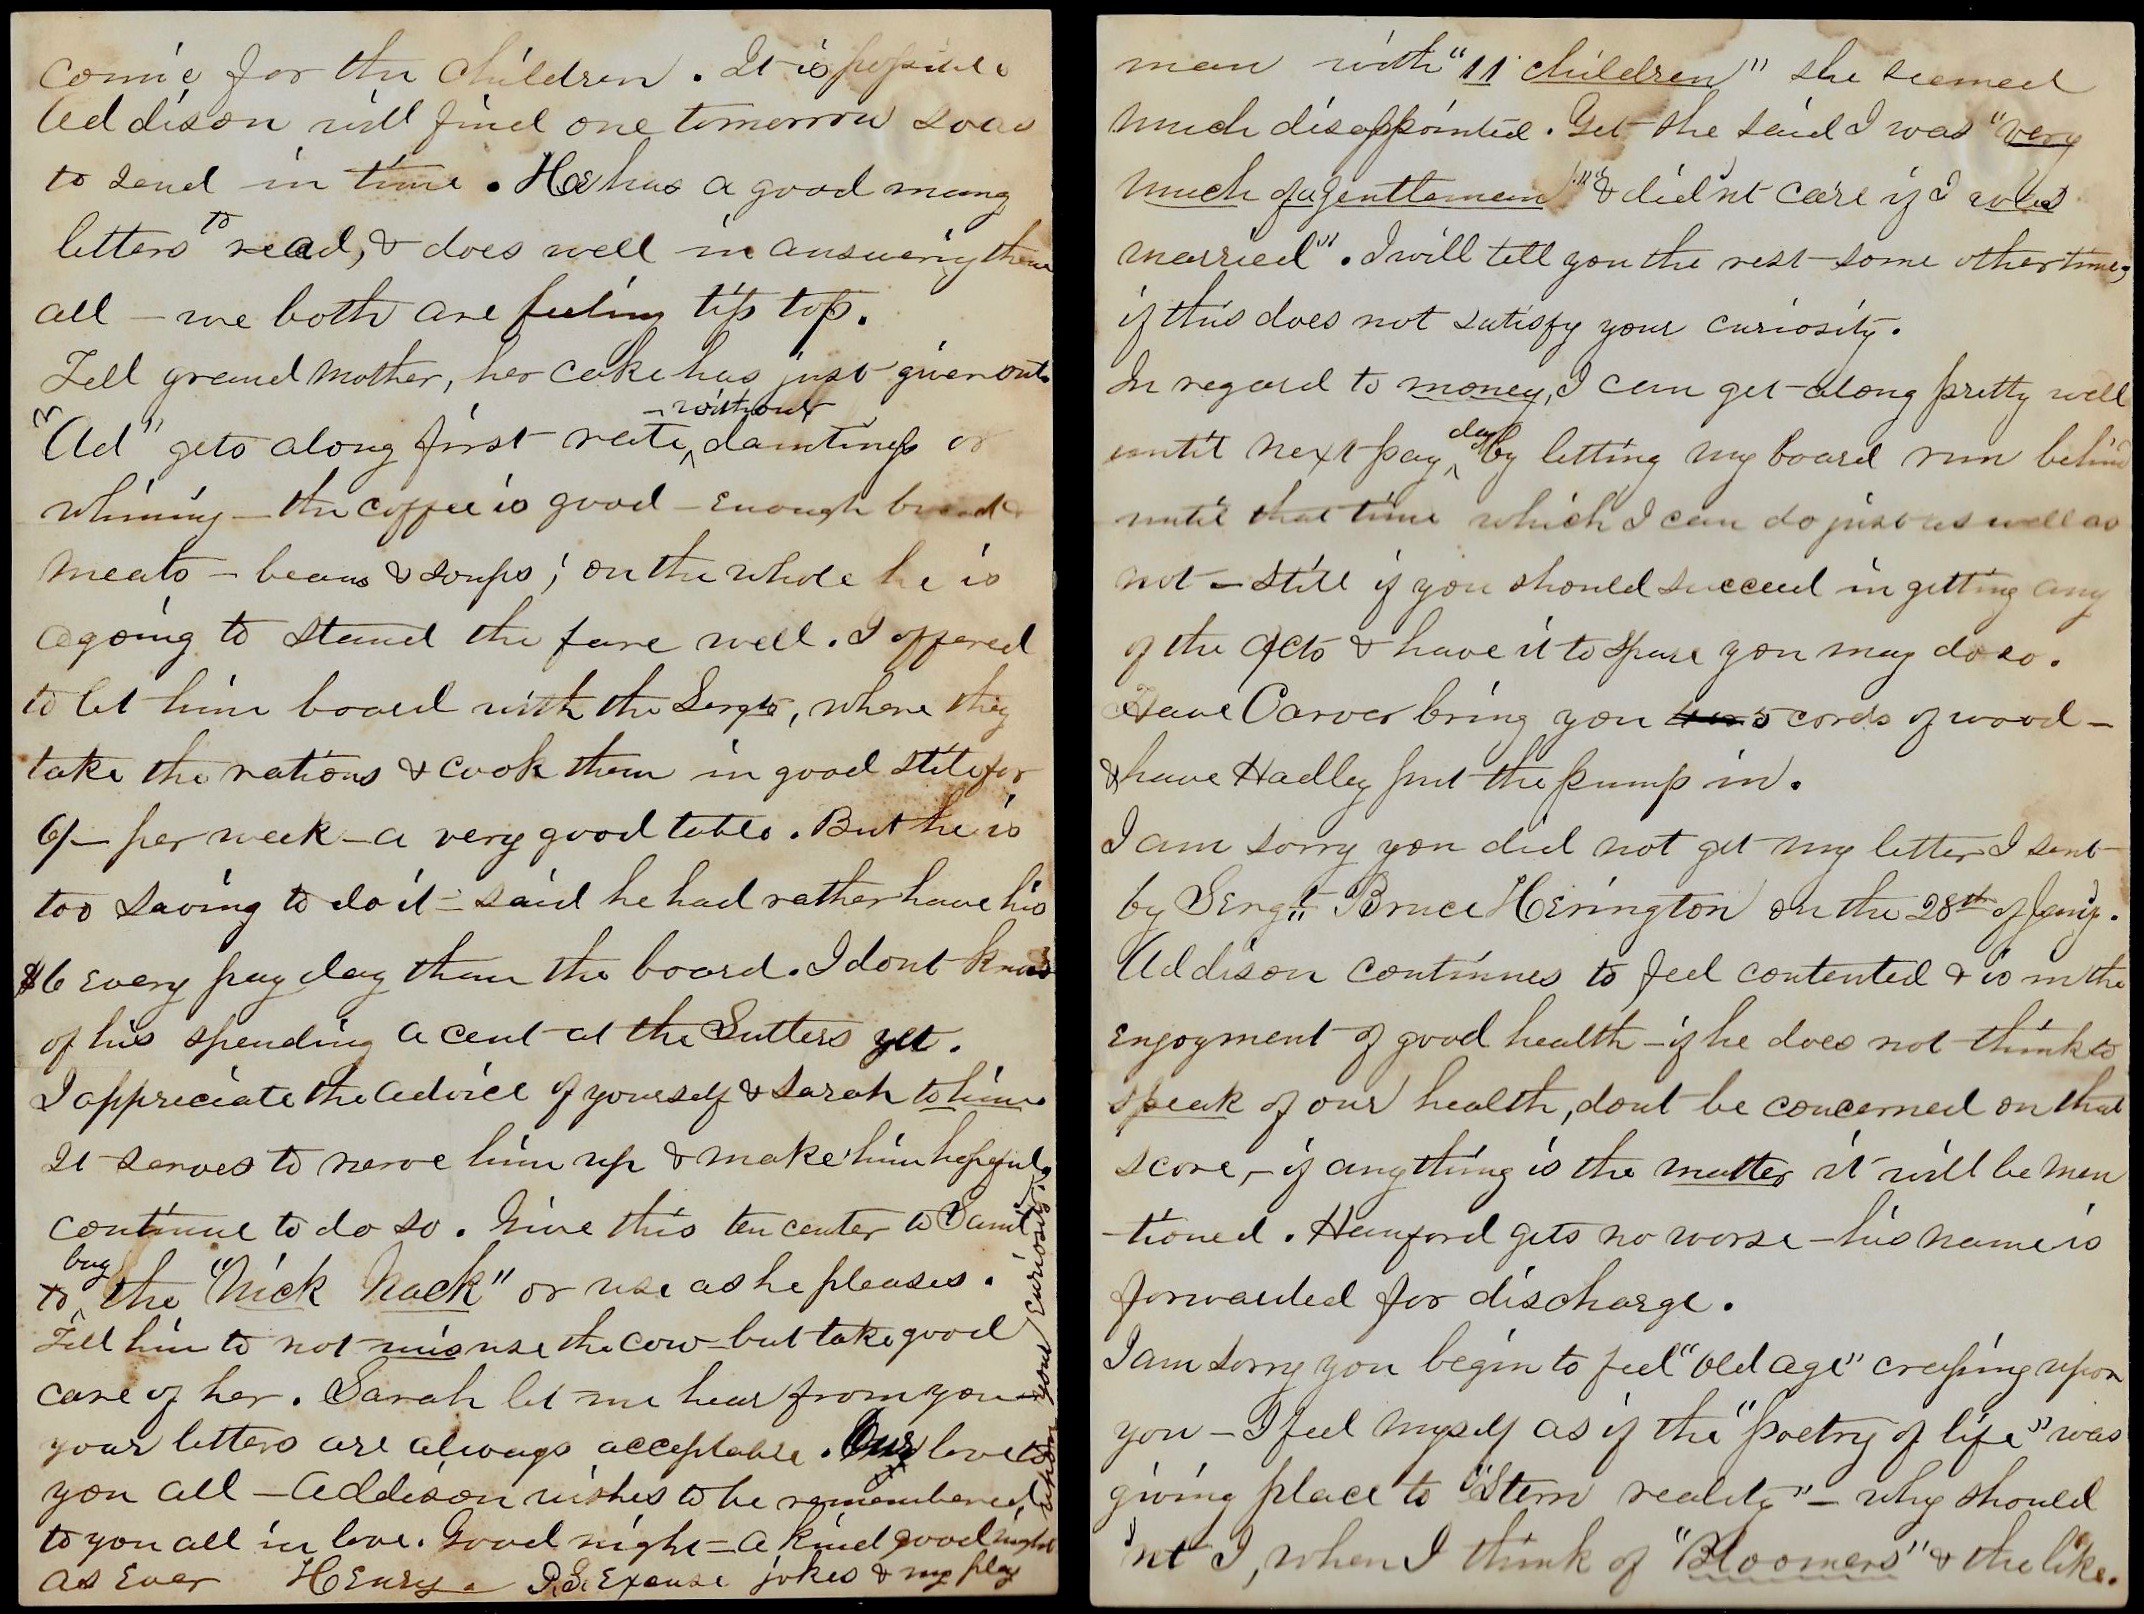 comic for the children. It is possible
Addison will find one tomorrow so as
to send in time. He has a good many
letters to read, & does well in answering them
all – we both are feeling tip top.
Tell grand mother, her cake has just given out
& "Ad" gets along first rate, – without daintings or
whining – the coffee is good – enough bread &
meats – beans & soups; on the whole he is
agoing to stand the fare well. I offered
to let him board with the Sergts, where they
take the rations & cook them in good stile for
6/– per week – a very good table. But he is
too saving to do it – said he had rather have his
$6 every pay day than the board. I dont know
of his spending a cent at the Sutlers yet.
I appreciate the advice of yourself & Sarah to him.
It serves to nerve him up & make him hopeful,
continue to do so. Give this ten center to Saml
to buy the "Nick Nack" or use as he pleases.
Tell him to not misuse the cow – but take good
care of her. Sarah let me hear from you –
your letters are always acceptable. Our love to
you all – Addison wishes to be remembered
to you all in love. Good night – a kind good night
as Ever Henry. P.S. Excuse jokes & my play
upon your curiosity.
man with "11 children" she seemed
much disappointed. Yet she said I was "very
much of a gentleman" "& did'nt care if I was
married". I will tell you the rest some other time,
if this does not satisfy your curiosity.
In regard to money, I can get along pretty well
until next pay day by letting my board run behind
until that time which I can do just as well as
not – still if you should succeed in getting any
of the accts & have it to spare you may do so.
Have Carver bring you 5 cords of wood –
& have Hadley put the pump in.
I am sorry you did not get my letter I sent
by Sergt Bruce Herington on the 28th of Jany.
Addison continues to feel contented & is in the
enjoyment of good health – if he does not think to
speak of our health, dont be concerned on that
score, – if anything is the matter it will be men
-tioned. Hanford gets no worse – his name is
forwarded for discharge.
I am sorry you begin to feel "old age" creeping upon
you – I feel myself as if the "poetry of life" was
giving place to "Stern reality" – why should
'nt I, when I think of "Bloomers" & the like.